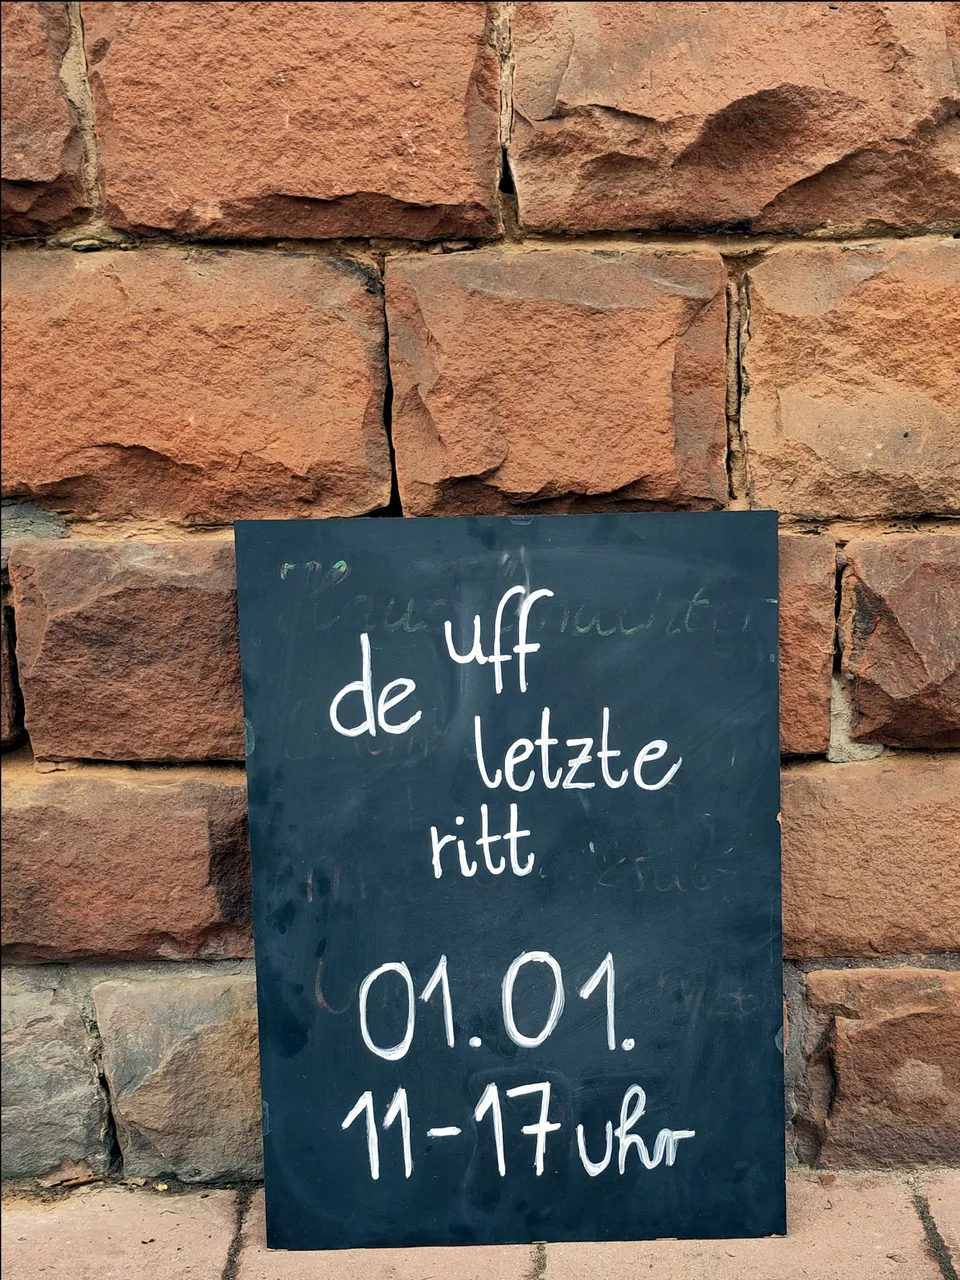 uff
de
letzte
ritt
01.01.
11-17 uhr